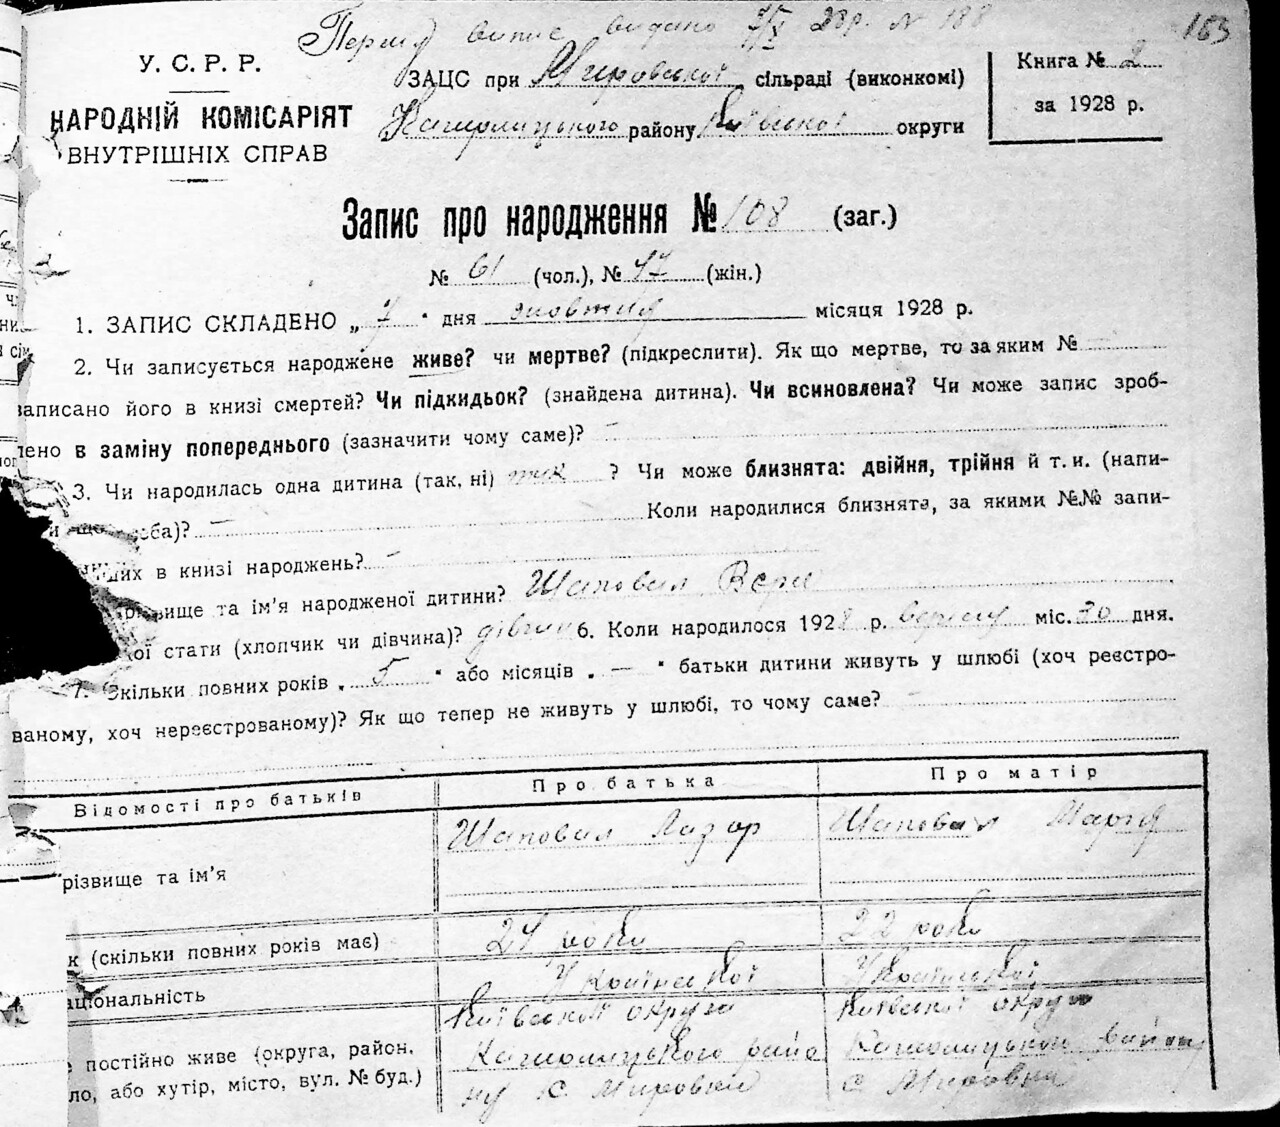 Перший випис видано 7/X 28р. № 188
163
У. С. Р. Р.
НАРОДНІЙ КОМІСАРІЯТ
ВНУТРІШНІХ СПРАВ
ЗАЦС при Мировської сільраді (виконкомі)
Кагарлицького району Київської округи
Книга № 2
за 1928 р.
Запис про народження № 108 (заг.)
№ 61 (чол.), № 47 (жін.)
1. ЗАПИС СКЛАДЕНО „ 7 " дня жовтня місяця 1928 р.
2. Чи записується народжене живе? чи мертве? (підкреслити). Як що мертве, то за яким №
записано його в книзі смертей? Чи підкидьок? (знайдена дитина). Чи всиновлена? Чи може запис зроб-
лено в заміну попереднього (зазначити чому саме)? —
3. Чи народилась одна дитина (так, ні) так ? Чи може близнята: двійня, трійня й т. и. (напи-
и що оба)? — Коли народилися близнята, за якими №№ запи-
них в книзі народжень? —
вище та ім'я народженої дитини? Шаповал Вера
ої стати (хлопчик чи дівчина)? дівчин 6. Коли народилося 1928 р. вересня міс. 30 дня.
7. Скільки повних років „ 5 " або місяців „ — " батьки дитини живуть у шлюбі (хоч реєстро-
ваному, хоч нереєстрованому)? Як що тепер не живуть у шлюбі, то чому саме? —
Відомості про батьків Про батька Про матір
різвище та ім'я Шаповал Лазар Шаповал Марія
к (скільки повних років має) 24 роки 22 роки
аціональність Української Української
постійно живе (округа, район,
ло, або хутір, місто, вул. № буд.)
Київської округи
Кагарлицького райо
ну с. Мировки
Київської округи
Кагарлицького району
с. Мировки